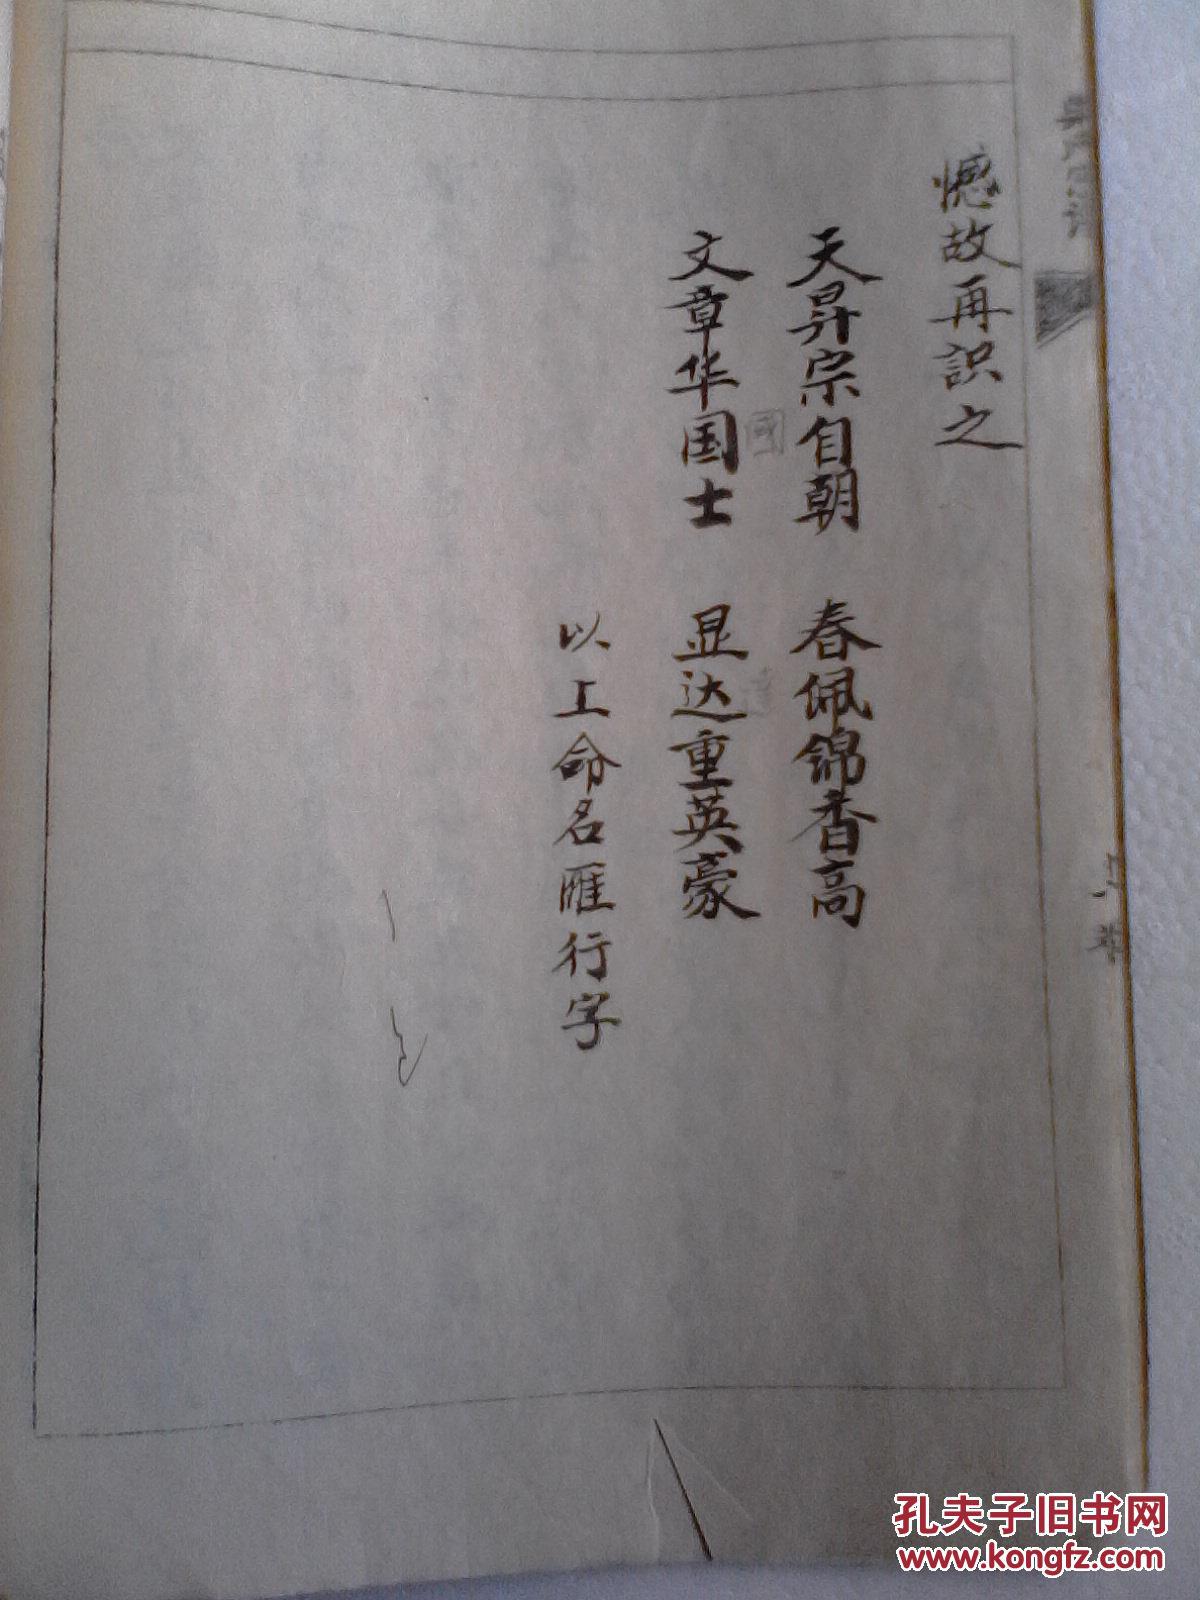 憾故再识之
天昇宗自朝 春佩锦香高
文章华国士 显达重英豪
國
達
以上命名雁行字
孔夫子旧书网
www.kongfz.com